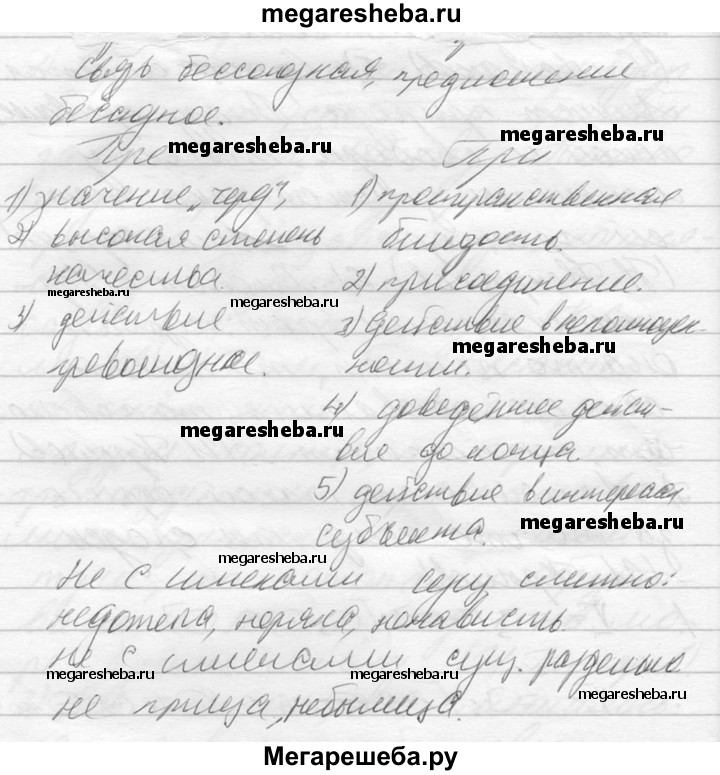 megaresheba.ru
Связь бессоюзная, предложение
megaresheba.ru
бессоюзное.
megaresheba.ru
Пре
megaresheba.ru
При
1) значение „через",
1) пространственная
2) высокая степень
близость.
качества.
2) присоединение.
megaresheba.ru
megaresheba.ru
3) действие
3) действие в неполноцен-
megaresheba.ru
превосходное.
ности.
4) доведение дейст-
megaresheba.ru
вие до конца.
5) действие в интересах
megaresheba.ru
субъекта.
megaresheba.ru
Не с именами сущ. слитно:
недотепа, неряха, ненависть.
не с именами сущ. раздельно
megaresheba.ru
megaresheba.ru
megaresheba.ru
не птица, небылица.
Мегарешеба.ру